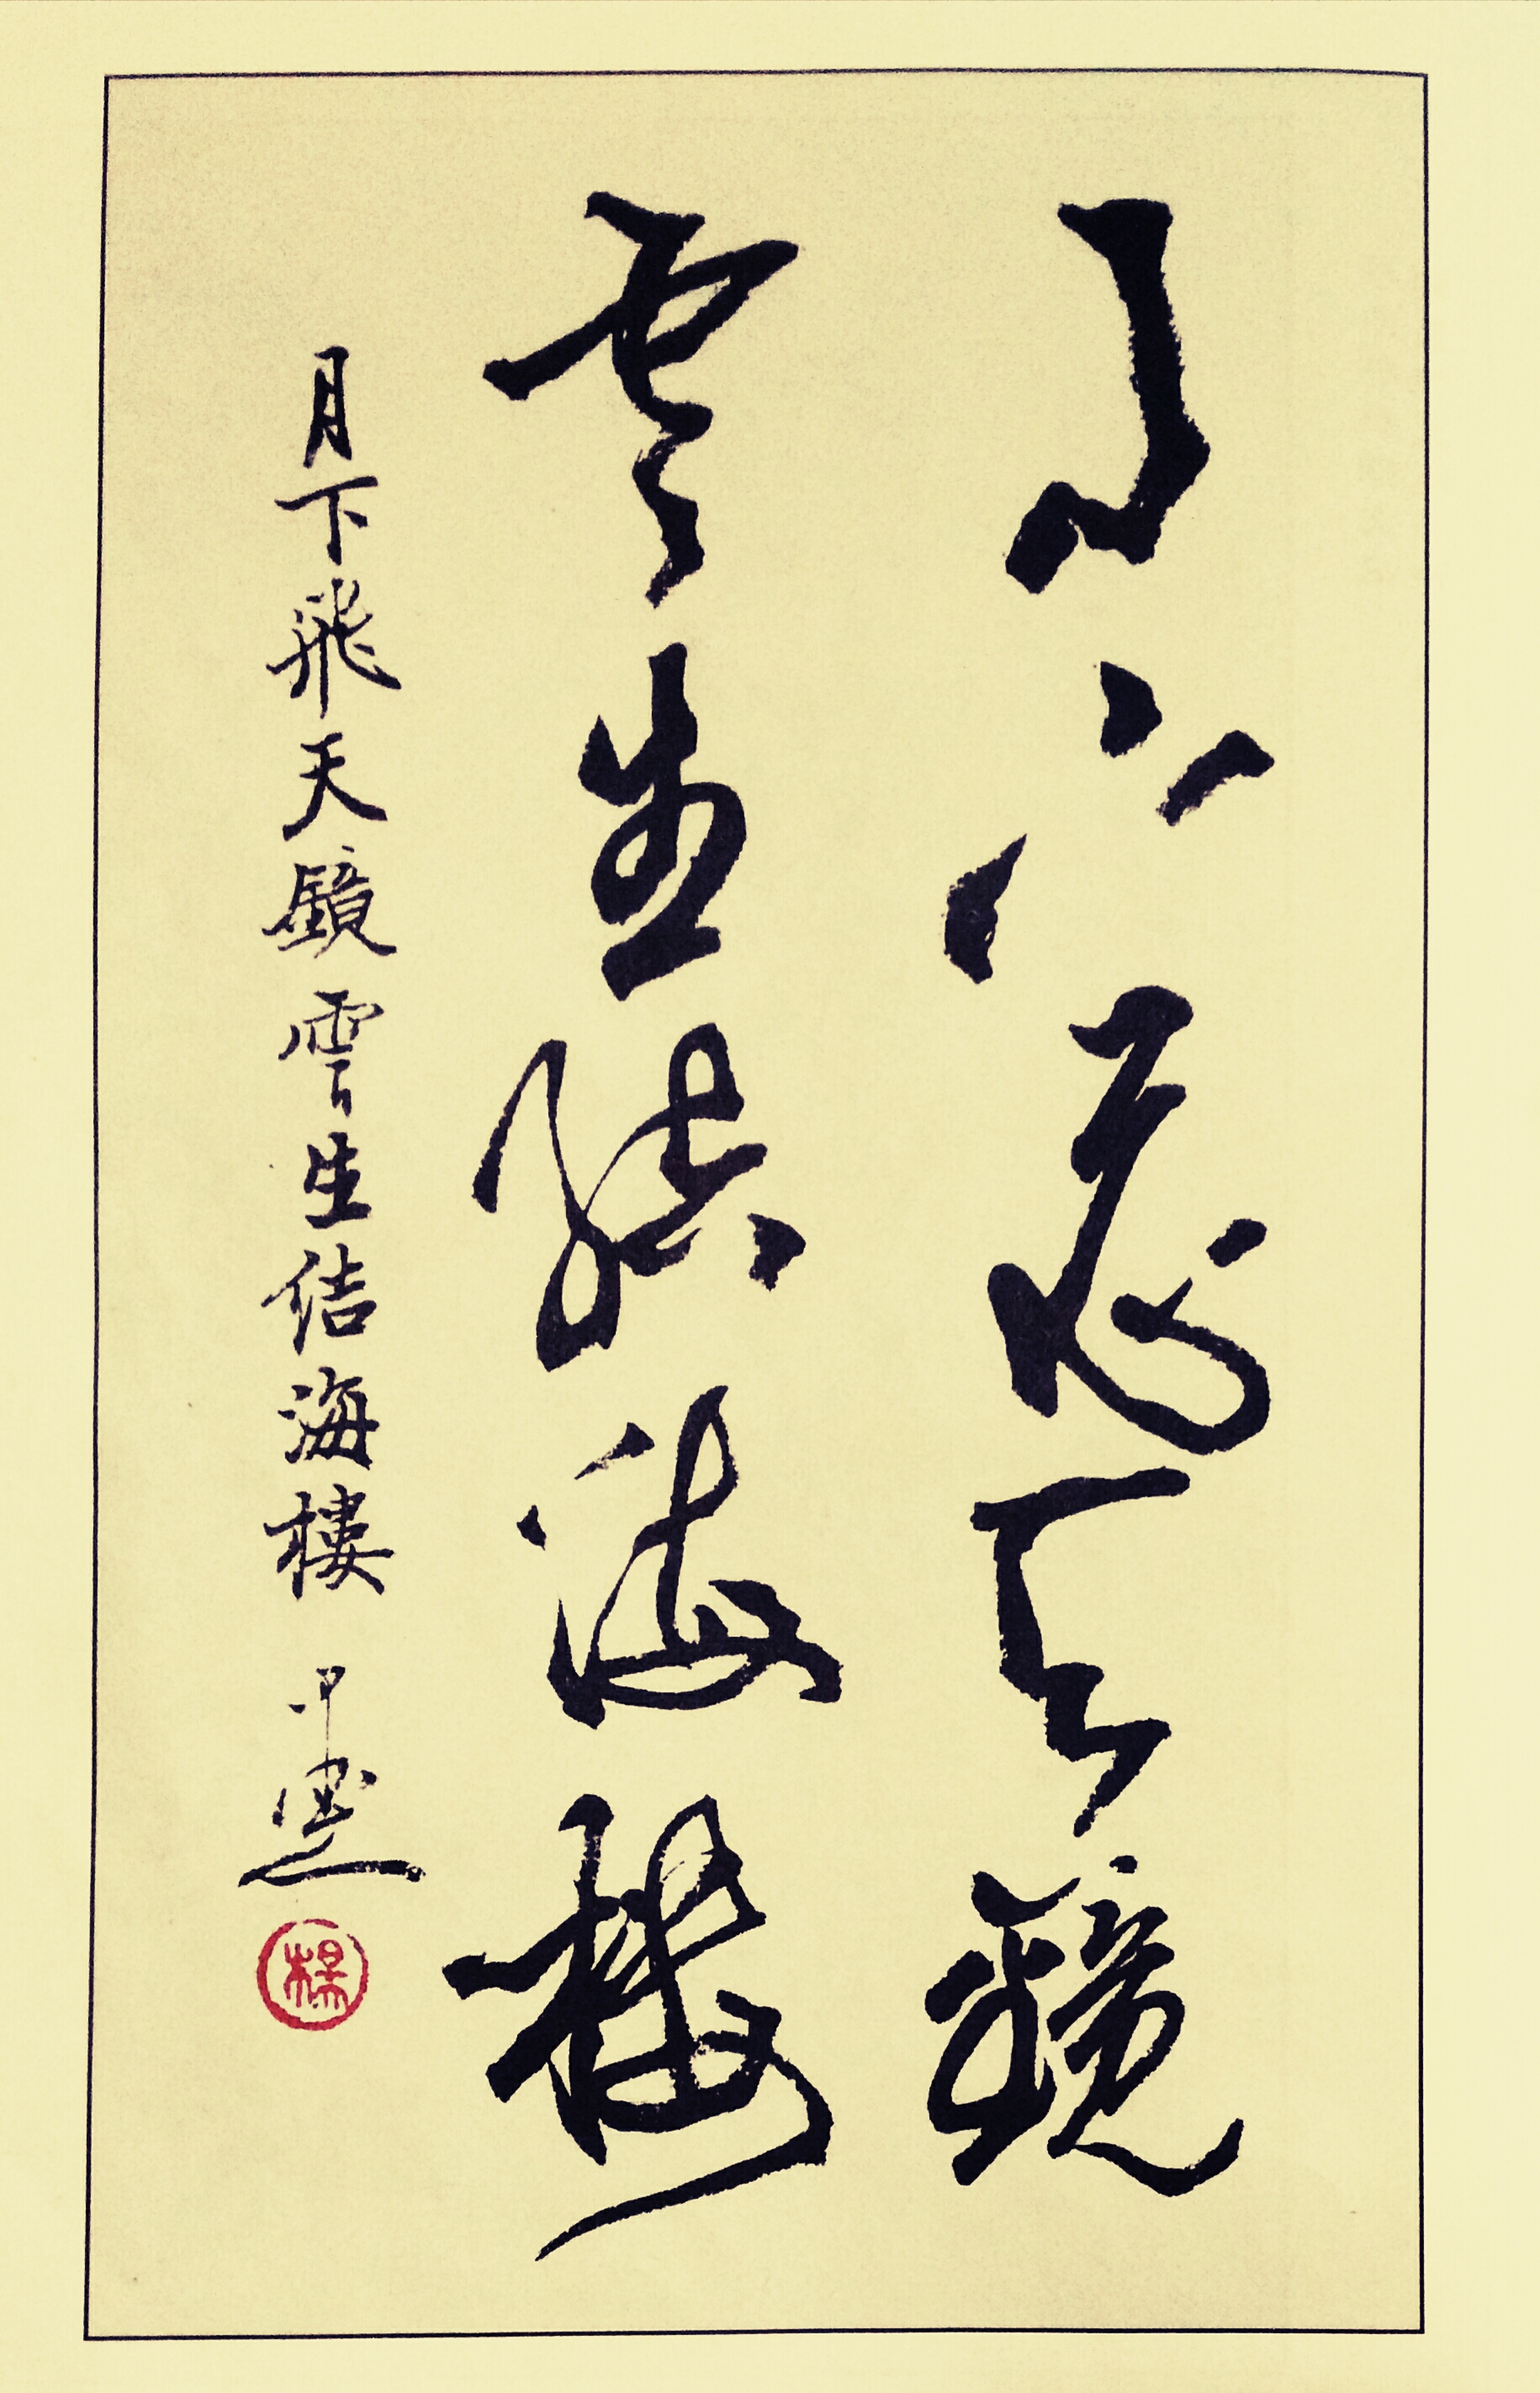 月下飛天鏡
雲生結海樓
月下飛天鏡雲生結海樓
楊